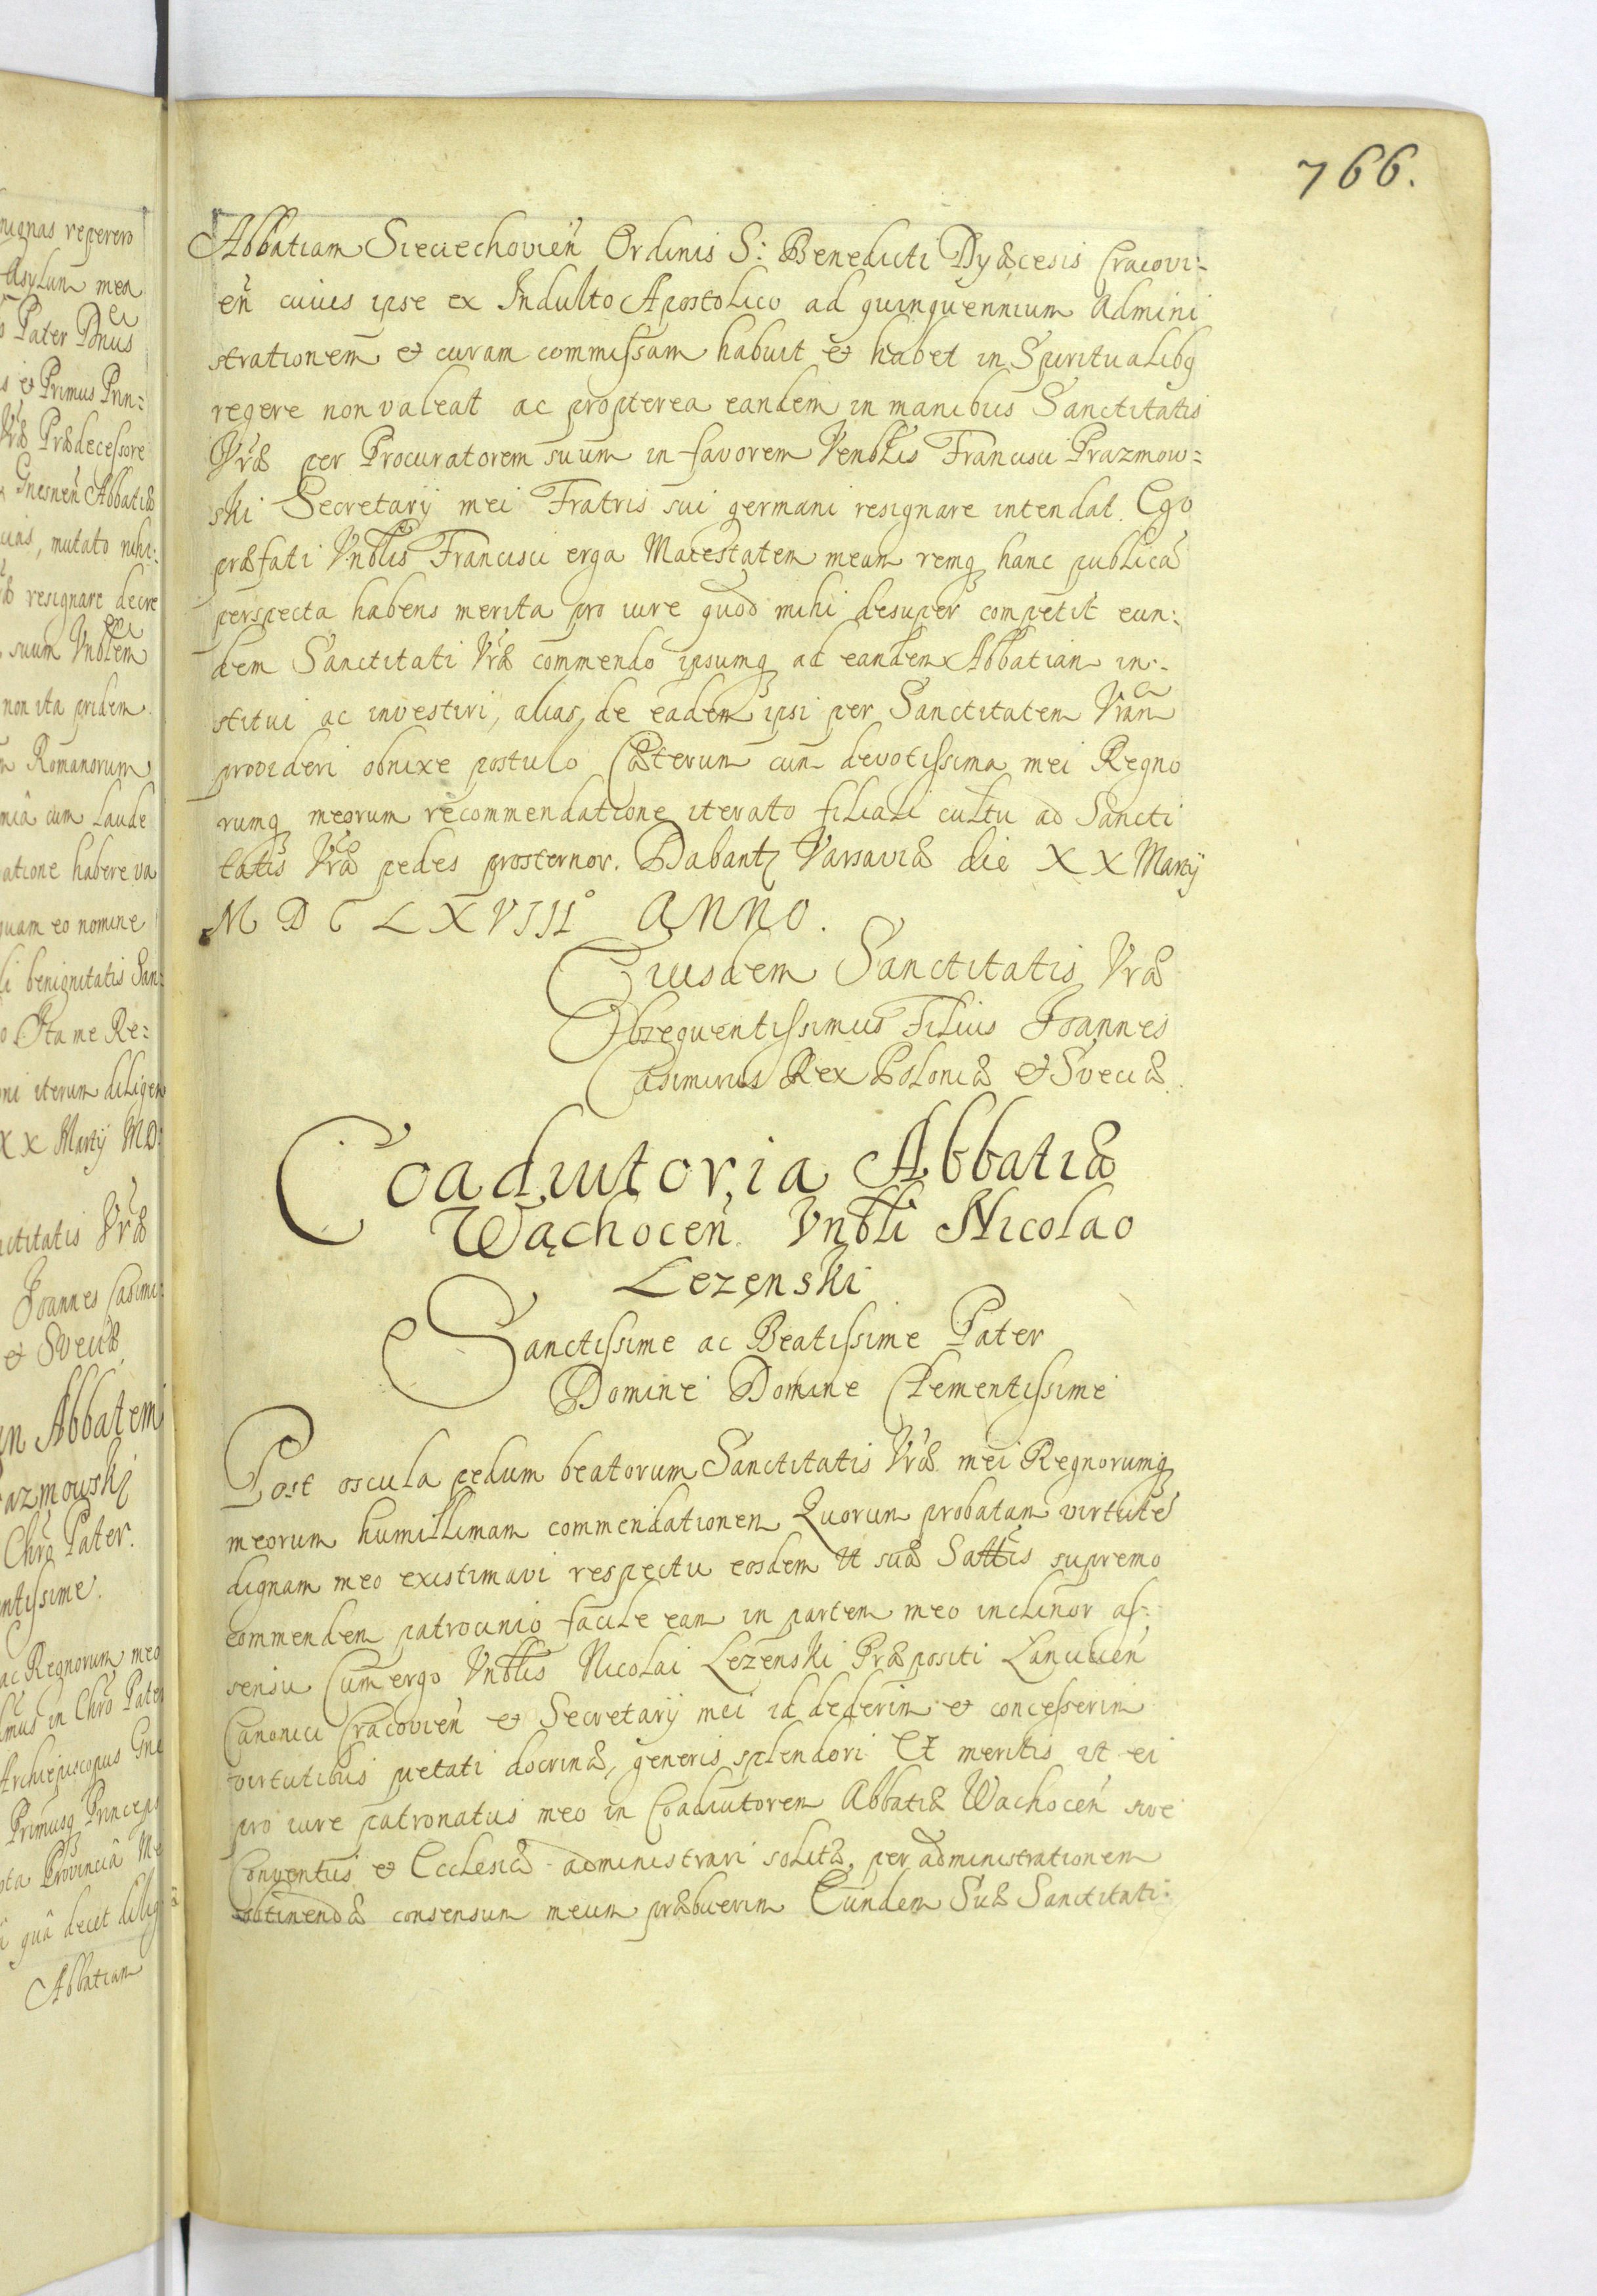 766.
Abbatiam Sieciechovien̄ Ordinis S: Benedicti Dyæcesis Cracovi:
en̄ cuius ipse ex Indulto Apostolico ad quinquennium Admini
strationem et curam commissam habuit et habet in Spiritualibq
regere non valeat ac propterea eandem in manibus Sanctitatis
Vræ per Procuratorem suum in favorem Venblis Francisci Prazmow:
ski Secretarij mei Fratris sui germani resignare intendat. Ego
præfati Vnblis Francisci erga Maiestatem meam remq hanc publicā
perspecta habens merita pro iure quod mihi desuper competit eun:
dem Sanctitati Vræ commendo ipsumq ad eandem Abbatiam in:
stitui ac investiri, alias de eadem ipsi per Sanctitatem Vram
provideri obnixe postulo Cæterum cum devotissima mei Regno
rumq meorum recommendatione iterato filiali cultu ad Sancti
tatis Vræ pedes prosternor. Dabantz Varsaviæ die XX Martij
M D C L X V I I I° Anno.
Eiusdem Sanctitatis Vræ
Obsequentissimus Filius Joannes
Casimirus Rex Poloniæ et Sveciæ
Coadiutoria Abbatiæ
Wąchocen̄ Vnbli Nicolao
Lezenski
Sanctissime ac Beatissime Pater
Domine Domine Clementissime
Post oscula pedum beatorum Sanctitatis Vræ mei Regnorumq
meorum humillimam commendationem Quorum probatam virtutē
dignam meo existimavi respectu eosdem ut suæ Sattis supremo
commendem patrocinio facile eam in partem meo inclinor as:
sensu Cum ergo Vnblis Nicolai Lezenski Præpositi Lancicien̄
Canonici Cracovien̄ et Secretarij mei id dederim et concesserim
virtutibus pietati docrinæ, generis splendori Et meritis ut ei
pro iure patronatus meo in Coadiutorem Abbatiæ Wachocen̄ sive
Conventus et Ecclesiæ administrari solitæ, per administrationem
obtinendæ consensum meum præbuerim Eundem Suæ Sanctitati: